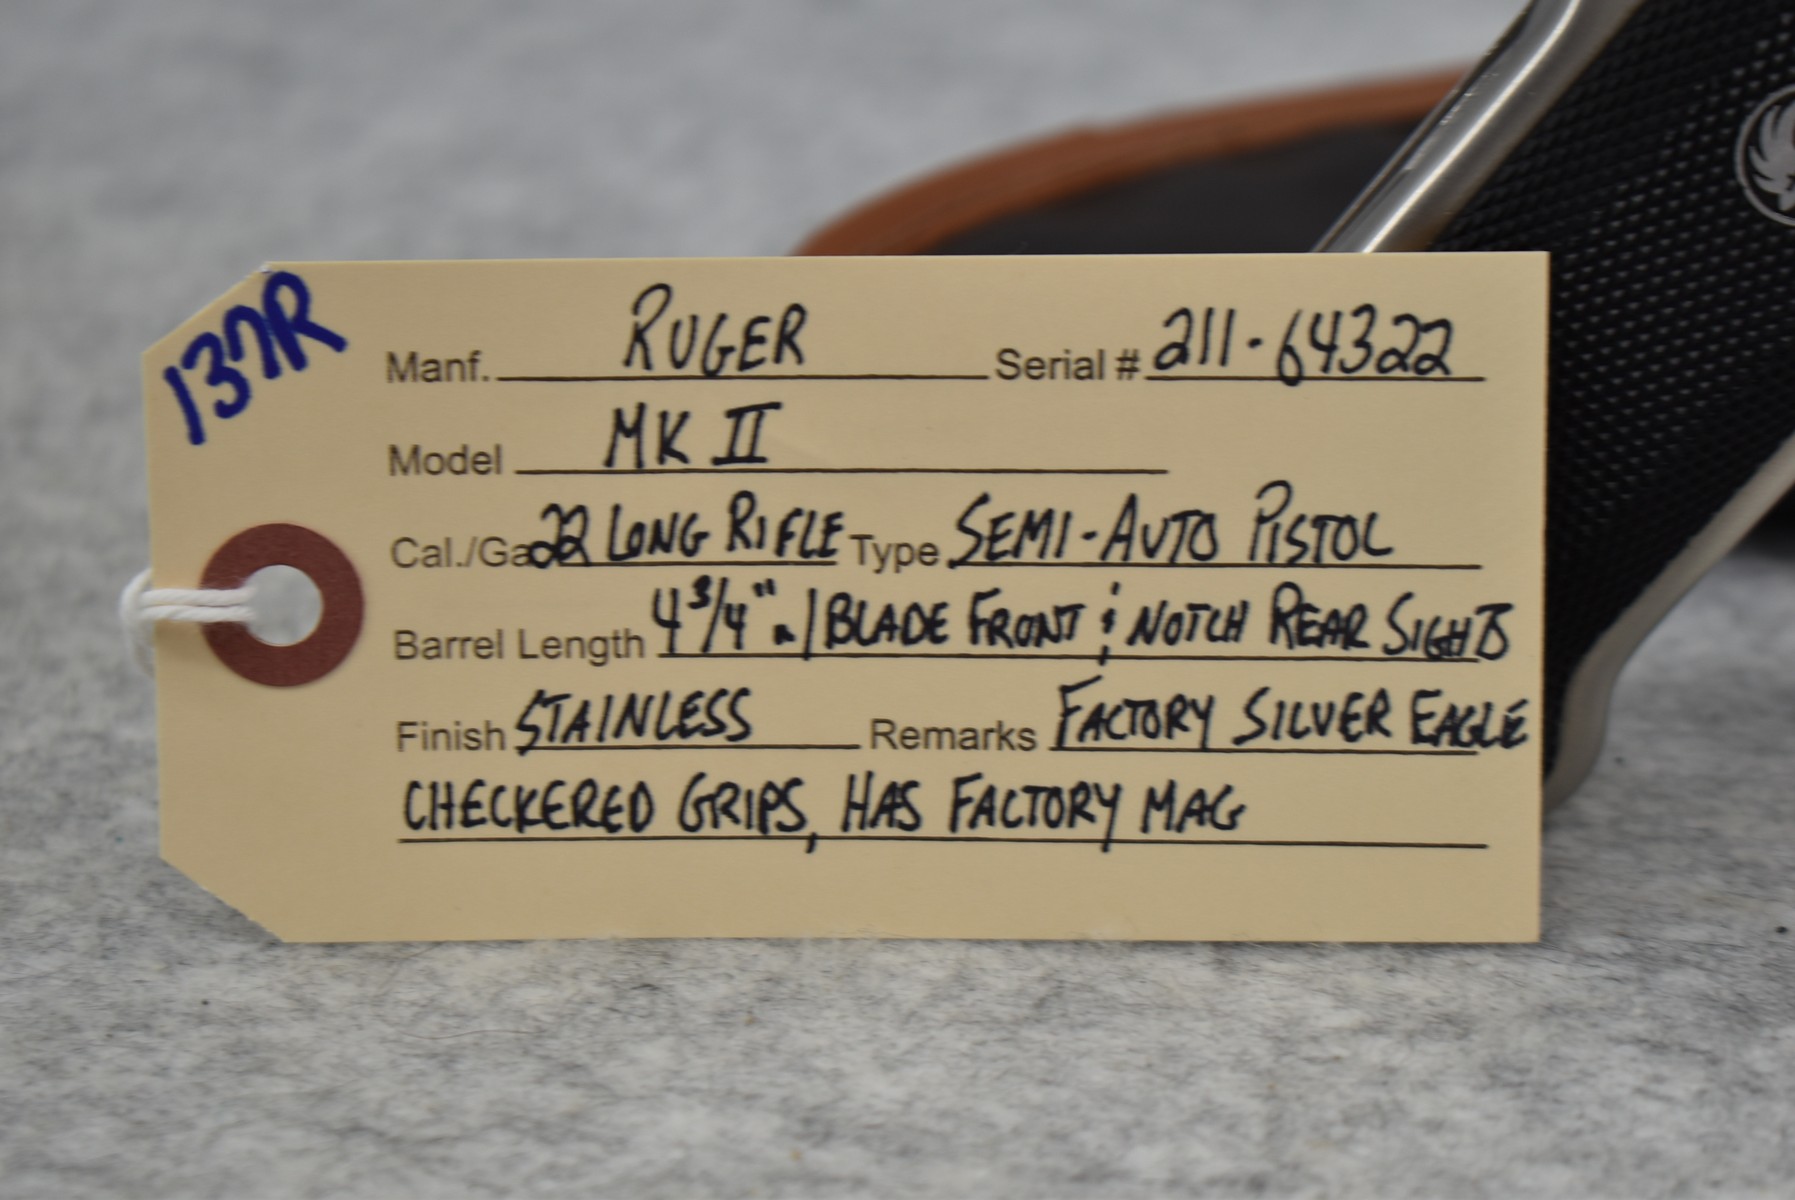 137R
Manf. RUGER Serial # 211-64322
Model MK II
Cal./Ga 22 LONG RIFLE Type SEMI-AUTO PISTOL
Barrel Length 4 3/4" w/ BLADE FRONT & NOTCH REAR SIGHTS
Finish STAINLESS Remarks FACTORY SILVER EAGLE
CHECKERED GRIPS, HAS FACTORY MAG